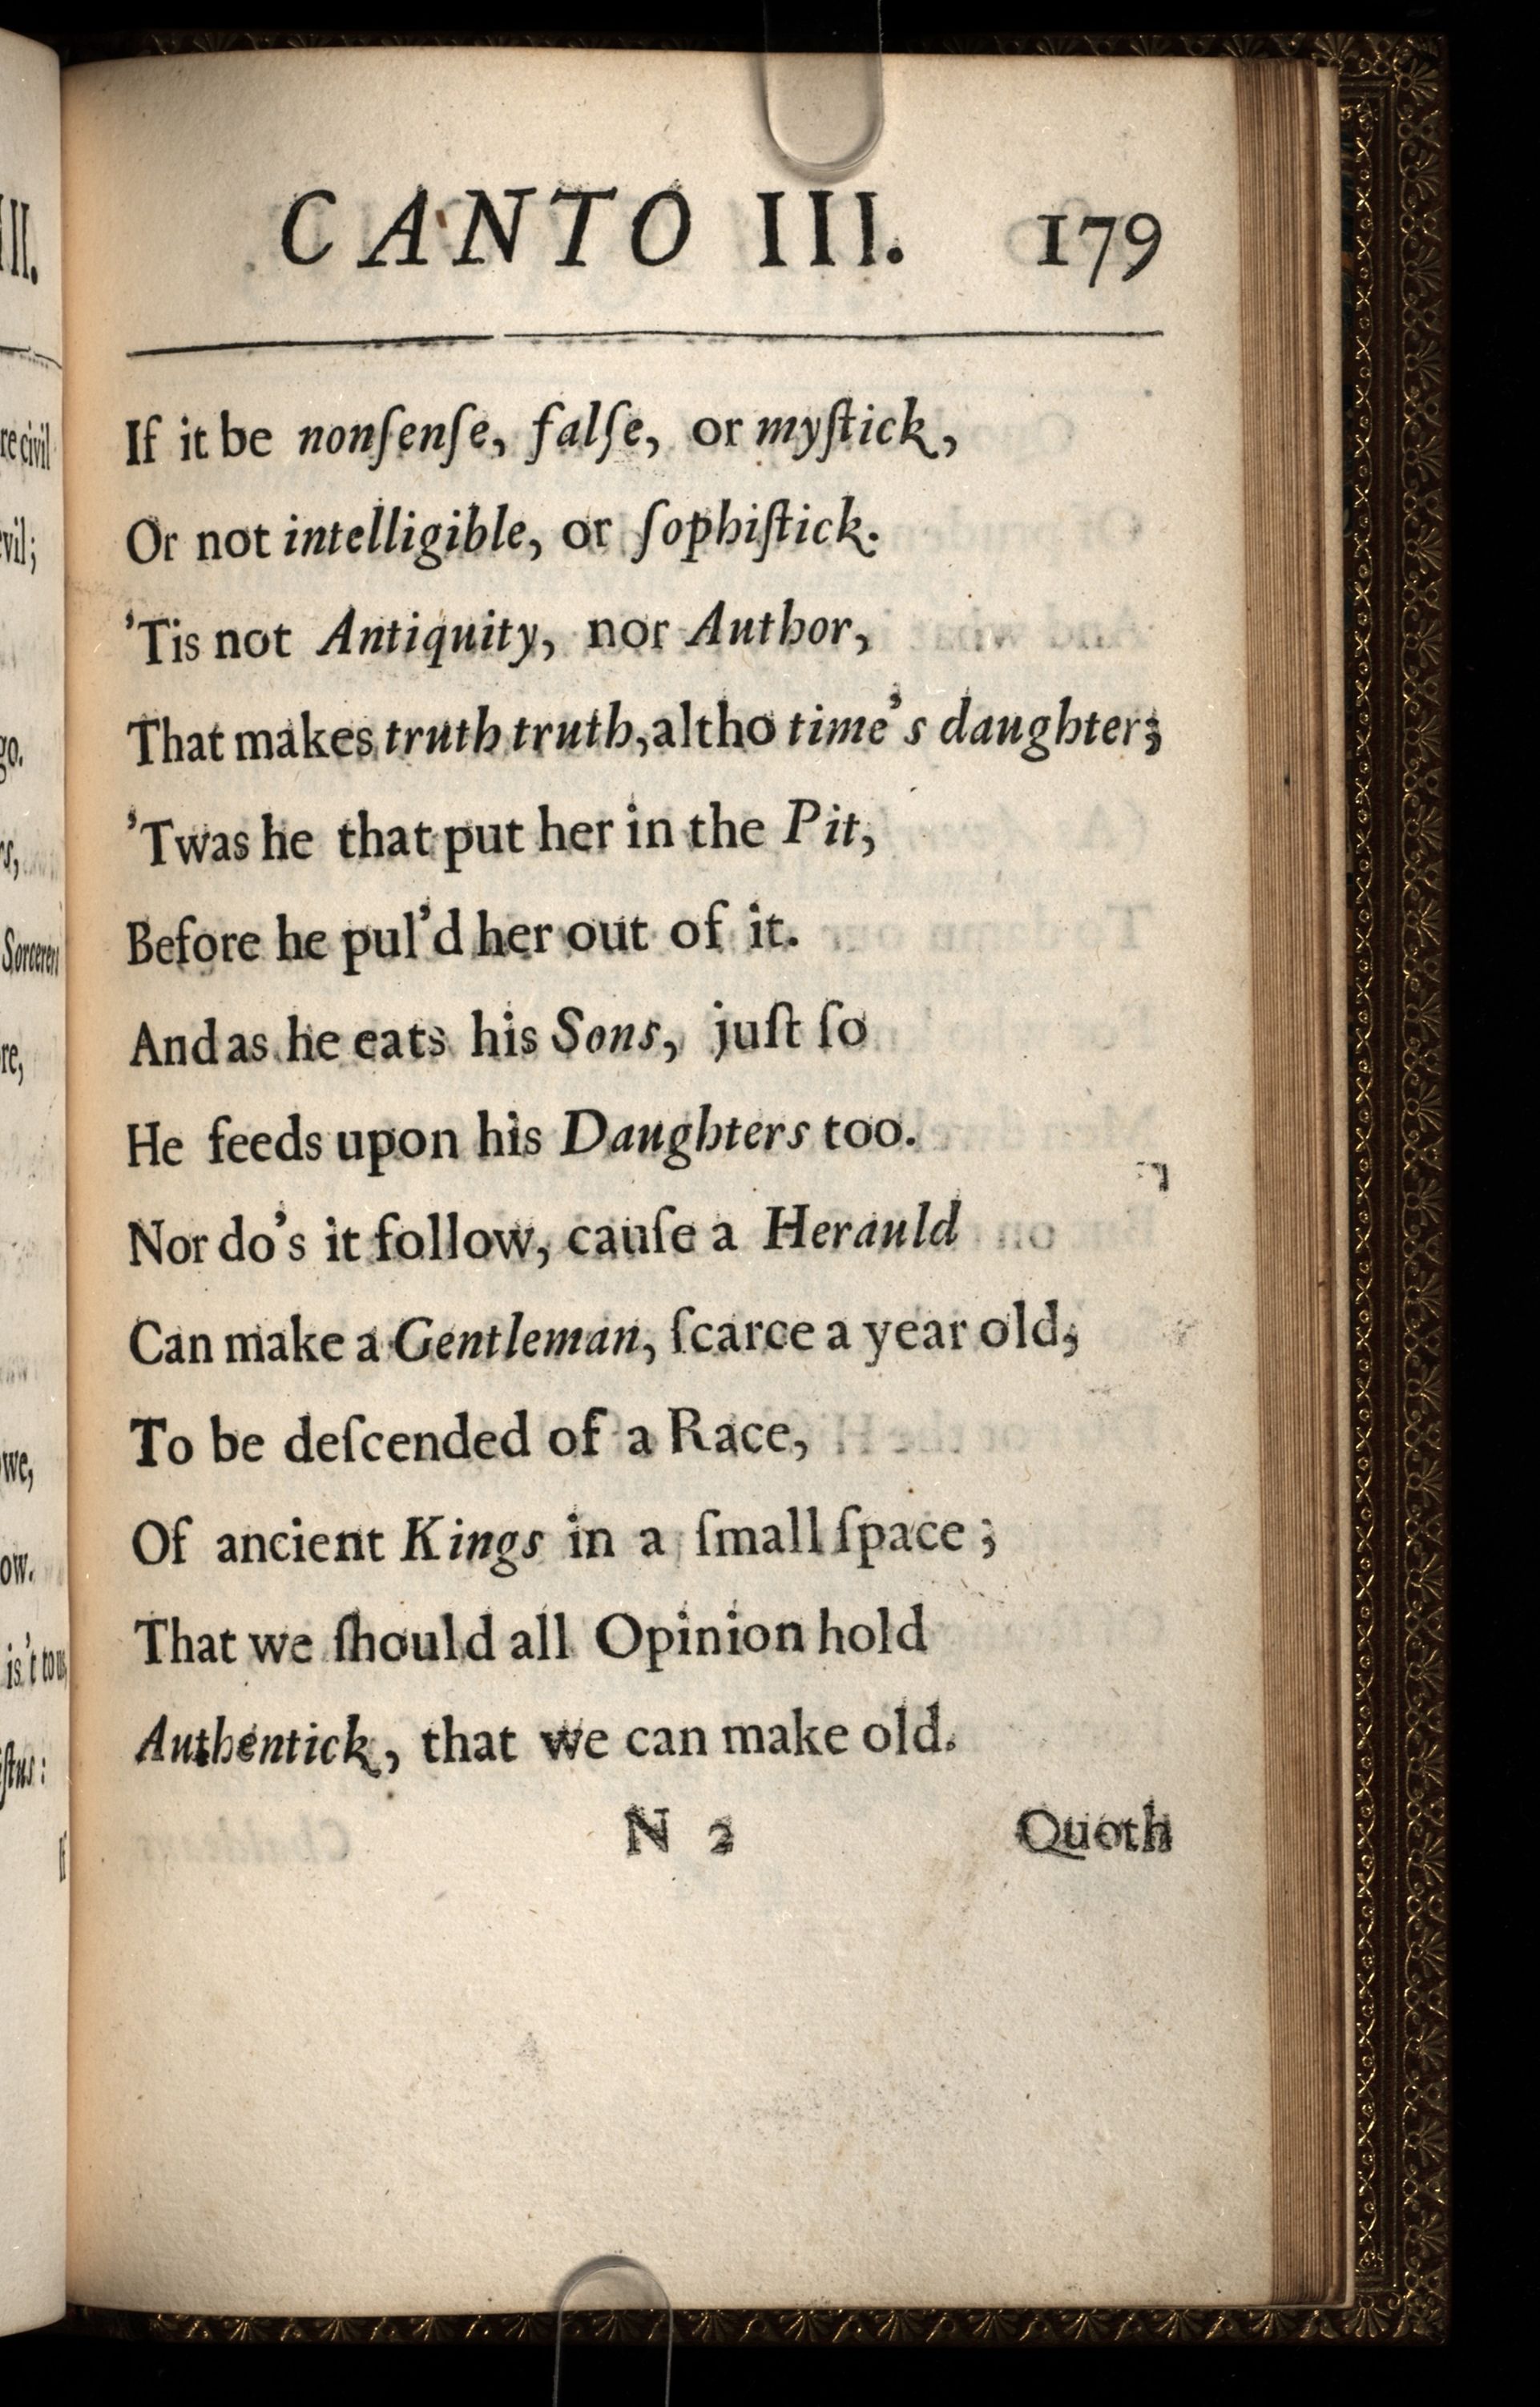 CANTO III. 179
If it be nonſenſe, falſe, or myſtick,
Or not intelligible, or ſophiſtick.
'Tis not Antiquity, nor Author,
That makes truth truth, altho time's daughter;
'Twas he that put her in the Pit,
Before he pul'd her out of it.
And as he eats his Sons, juſt ſo
He feeds upon his Daughters too.
Nor do's it follow, cauſe a Herauld
Can make a Gentleman, ſcarce a year old;
To be deſcended of a Race,
Of ancient Kings in a ſmall ſpace;
That we ſhould all Opinion hold
Authentick, that we can make old.
N 2 Quoth